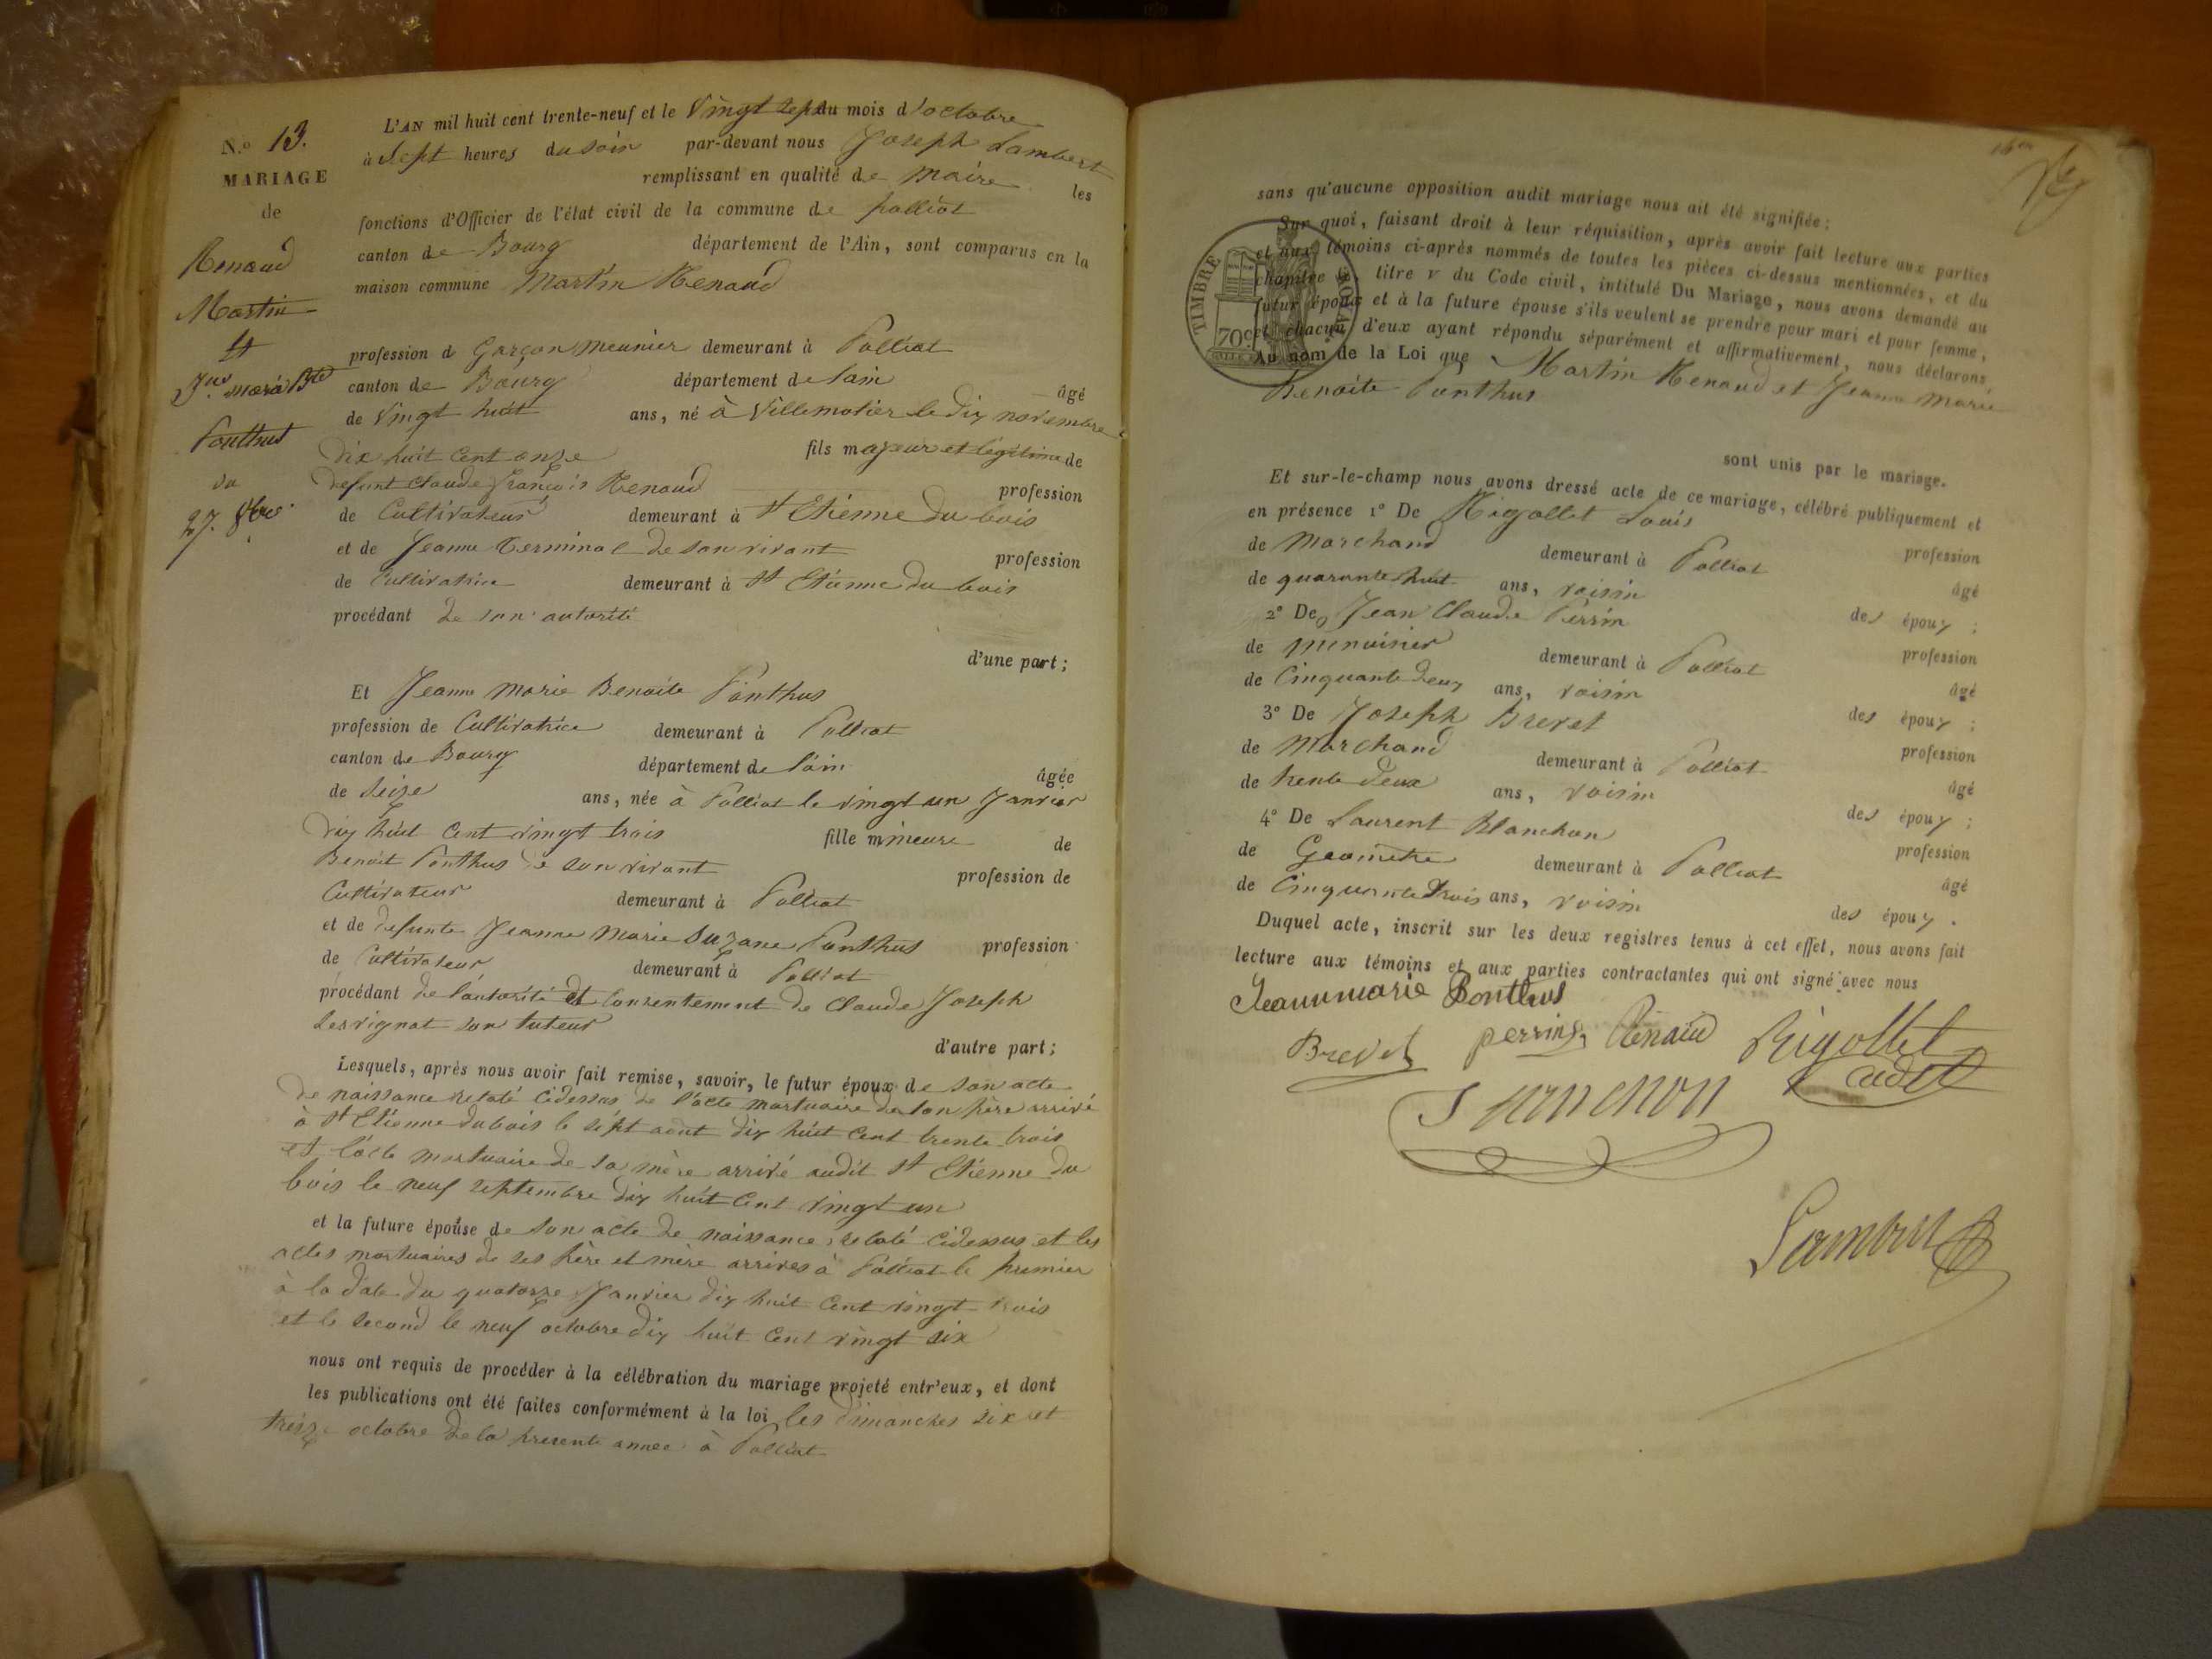 N.º 13.
MARIAGE
de
Renaud
Martin
et
J.ne marie B.te
Ponthus
du
27. 8bre
L'AN mil huit cent trente-neuf et le Vingt Sept du mois d'octobre
à Sept heures du soir par-devant nous Joseph Lambert
remplissant en qualité de Maire les
fonctions d'Officier de l'état civil de la commune de polliat
canton de Bourg département de l'Ain, sont comparus en la
maison commune Martin Renaud
profession d Garçon meunier demeurant à Polliat
canton de Bourg département de lain âgé
de Vingt huit ans, né à Villemotier le dix novembre
dix huit cent onze fils majeur et légitime de
defunt claude françois Renaud profession
de Cultivateur demeurant à st Etienne du bois
et de Jeanne Terminal de son vivant profession
de Cultivatrice demeurant à st Etienne du bois
procédant de son autorité
d'une part;
Et Jeanne Marie Benoite Ponthus
profession de Cultivatrice demeurant à Polliat
canton de Bourg département de lain âgée
de Seize ans, née à Polliat le vingt un Janvier
dix huit cent vingt trois fille mineure de
Benoit Ponthus de son vivant profession de
Cultivateur demeurant à Polliat
et de defunte Jeanne Marie Suzane Ponthus profession
de Cultivateur demeurant à Polliat
procédant de l'autorité et Consentement de Claude Joseph
Servignat son tuteur
d'autre part;
Lesquels, après nous avoir fait remise, savoir, le futur époux de son acte
de naissance relaté cidessus de l'acte mortuaire de son père arrivé
à st Etienne dubois le sept aout dix huit cent trente trois
et l'acte mortuaire de sa mère arrivé audit st Etienne du
bois le neuf septembre dix huit cent vingt un
et la future épouse de son acte de naissance relaté cidessus et les
actes mortuaires de ses père et mère arrivés à Polliat le premier
à la date du quatorze Janvier dix huit cent vingt trois
et le second le neuf octobre dix huit cent vingt six
nous ont requis de procéder à la célébration du mariage projeté entr'eux, et dont
les publications ont été faites conformément à la loi les dimanches six et
treize octobre de la presente annee à Polliat
sans qu'aucune opposition audit mariage nous ait été signifiée;
Sur quoi, faisant droit à leur réquisition, après avoir fait lecture aux parties
et aux témoins ci-après nommés de toutes les pièces ci-dessus mentionnées, et du
chapitre titre v du Code civil, intitulé Du Mariage, nous avons demandé au
futur époux et à la future épouse s'ils veulent se prendre pour mari et pour femme,
et chacun d'eux ayant répondu séparément et affirmativement, nous déclarons
Au nom de la Loi que Martin Renaud et Jeanne Marie
Benoite Ponthus
TIMBRE ROYAL
70c
sont unis par le mariage.
Et sur-le-champ nous avons dressé acte de ce mariage, célébré publiquement et
en présence 1º De Rigollet Louis
de Marchand demeurant à Polliat profession
de quarante huit ans, voisin âgé
2º De Jean Claude Perrin des époux;
de menuisier demeurant à Polliat profession
de Cinquante deux ans, voisin âgé
3º De Joseph Brevet des époux;
de Marchand demeurant à Polliat profession
de trente deux ans, voisin âgé
4º De Laurent Blanchon des époux;
de Geomètre demeurant à Polliat profession
de Cinquante trois ans, voisin âgé
des époux.
Duquel acte, inscrit sur les deux registres tenus à cet effet, nous avons fait
lecture aux témoins et aux parties contractantes qui ont signé avec nous
Jeannemarie Ponthus
Brevet perrin Renaud Rigollet
cadet
Lambert